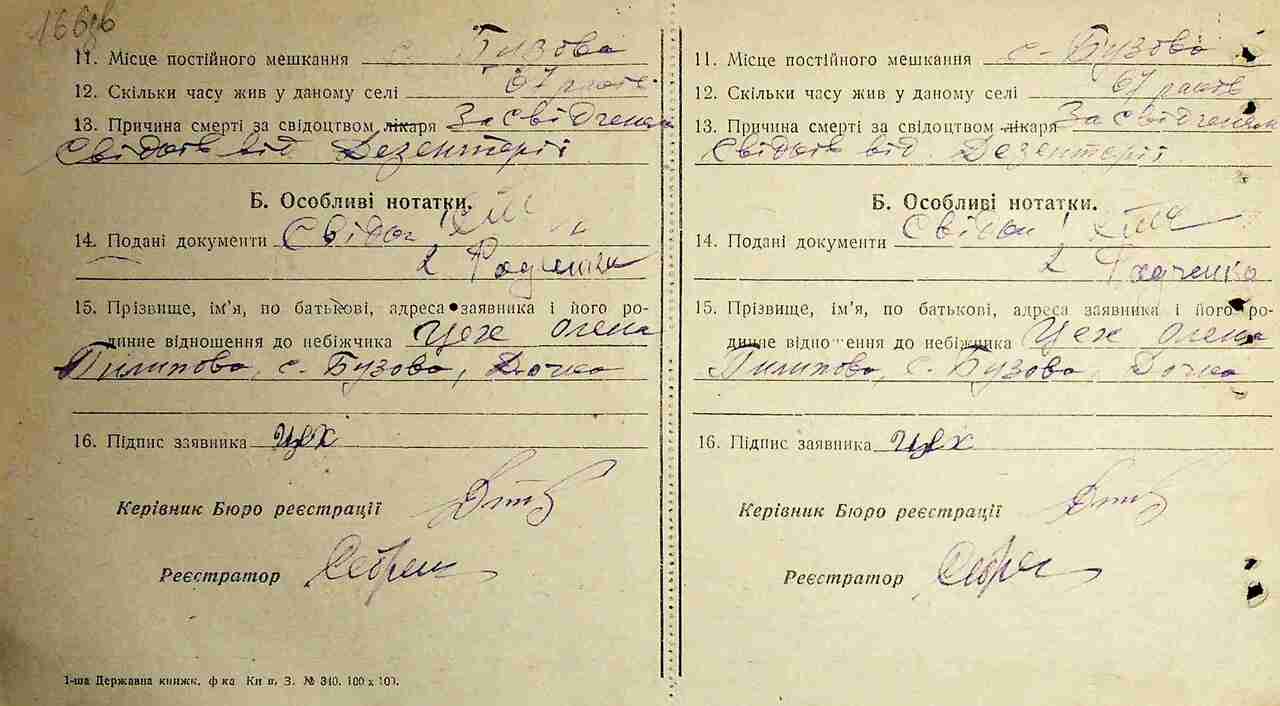 166зв
11. Місце постійного мешкання с. Бузова
12. Скільки часу жив у даному селі 67 років
13. Причина смерті за свідоцтвом лікаря За свідченям
Свідків від Дезентерії
Б. Особливі нотатки.
14. Подані документи Свідки
2 Радченко
15. Прізвище, ім'я, по батькові, адреса заявника і його ро-
динне відношення до небіжчика Цех Олена
Пилипова, с. Бузова, Дочка
16. Підпис заявника Цех
Керівник Бюро реєстрації
Реєстратор
1-ша Державна книжк. ф-ка Київ. З. № 340. 100 х 100.
11. Місце постійного мешкання с. Бузова
12. Скільки часу жив у даному селі 67 років
13. Причина смерті за свідоцтвом лікаря За свідченям
Свідків від Дезентерії
Б. Особливі нотатки.
14. Подані документи Свідки
2 Радченко
15. Прізвище, ім'я, по батькові, адреса заявника і його ро-
динне відношення до небіжчика Цех Олена
Пилипова, с. Бузова, Дочка
16. Підпис заявника Цех
Керівник Бюро реєстрації
Реєстратор